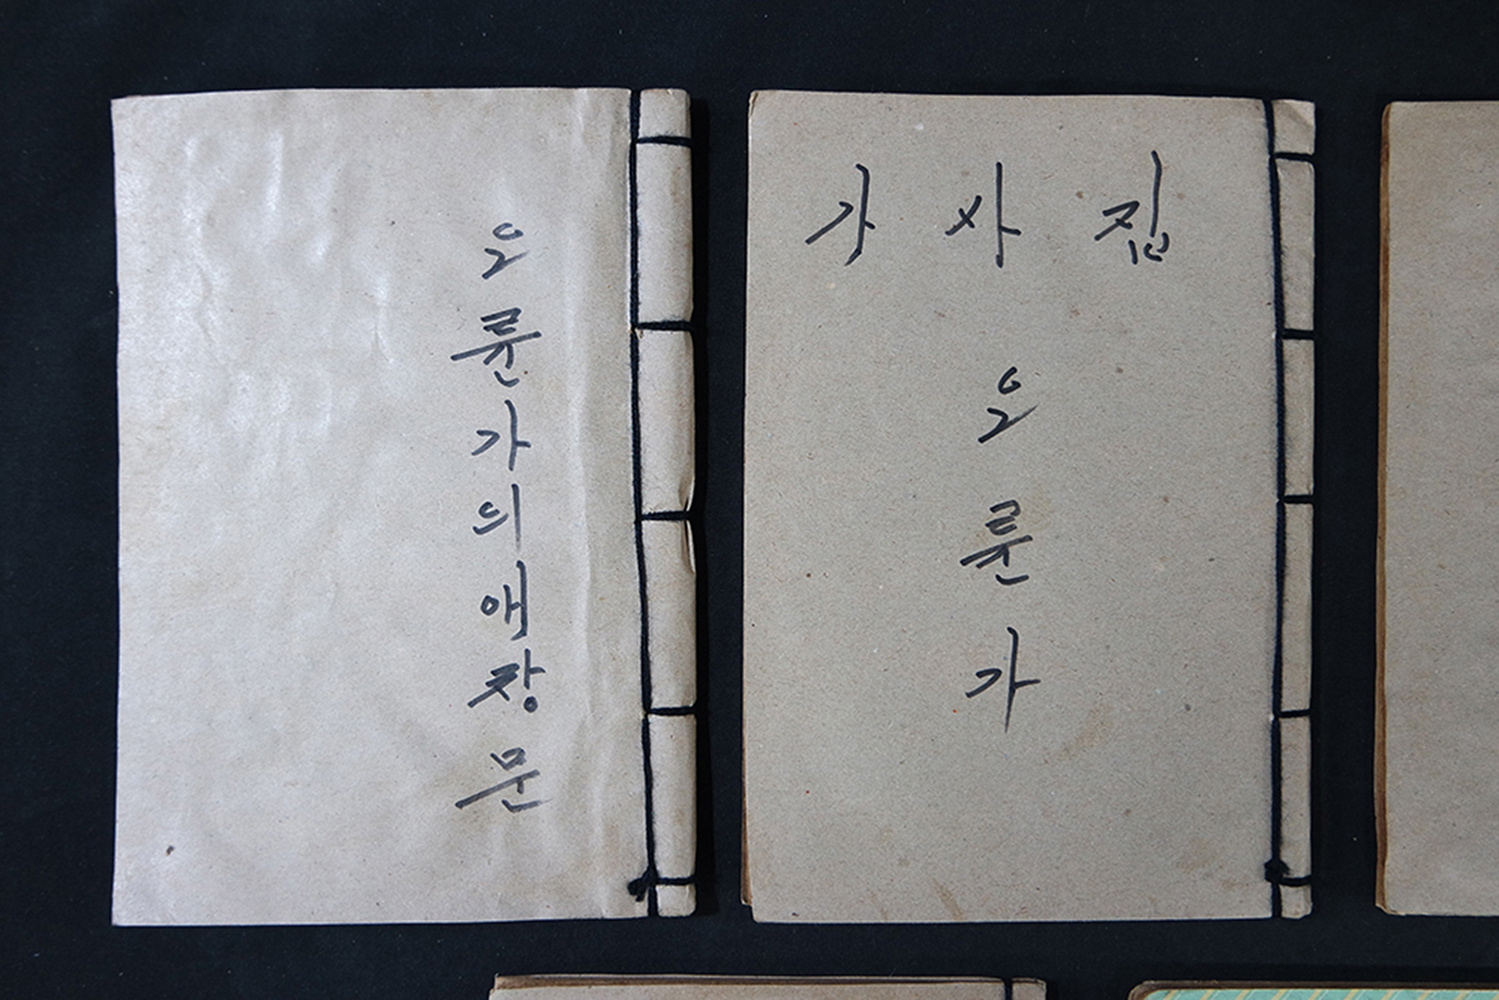 오륜가의애창문
가사집
오륜가